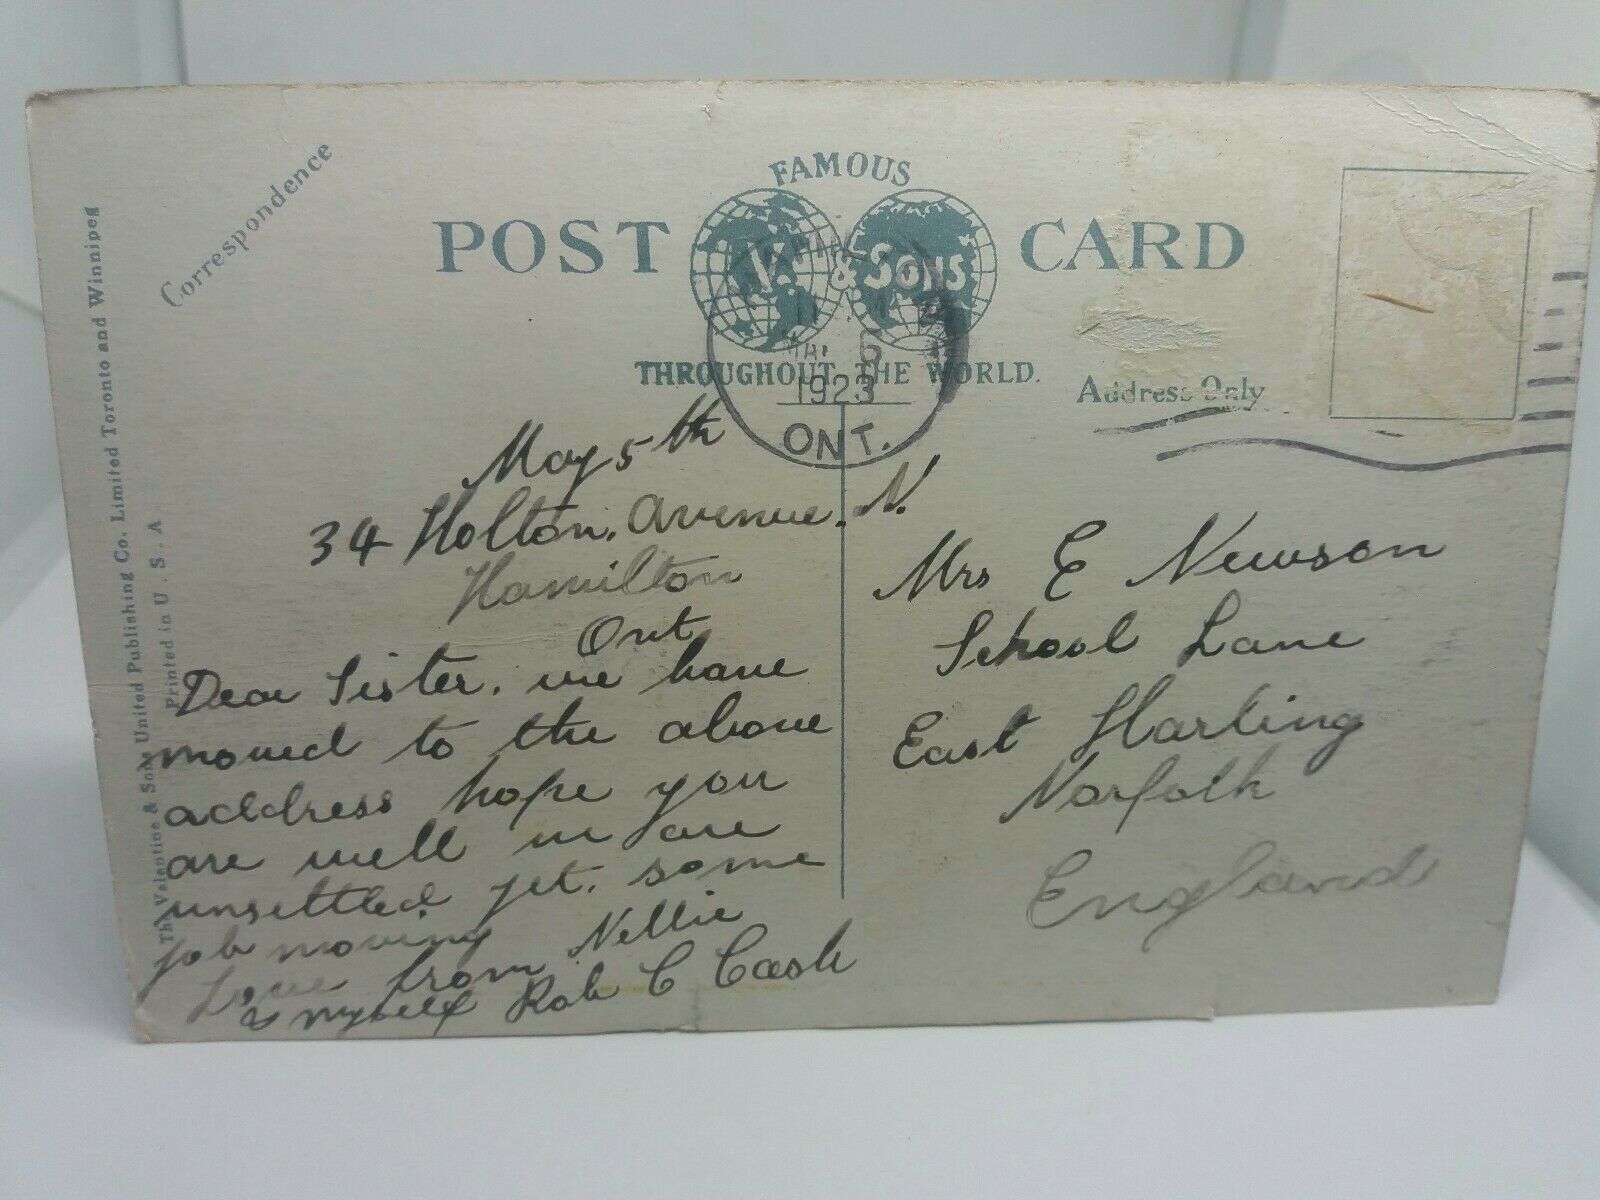 Correspondence
FAMOUS
POST CARD
& SONS
THROUGHOUT THE WORLD.
Address Only
6
1923
ONT.
The Valentine & Sons United Publishing Co. Limited Toronto and Winnipeg
Printed in U. S. A.
May 5th
34 Holton. Avenue. N.
Hamilton
Ont
Dear Sister. we have
moved to the above
address hope you
are well we are
unsettled yet. some
job moving
Love from Nellie
& myself Rob C Cash
Mrs E Newson
School Lane
East Harling
Norfolk
England